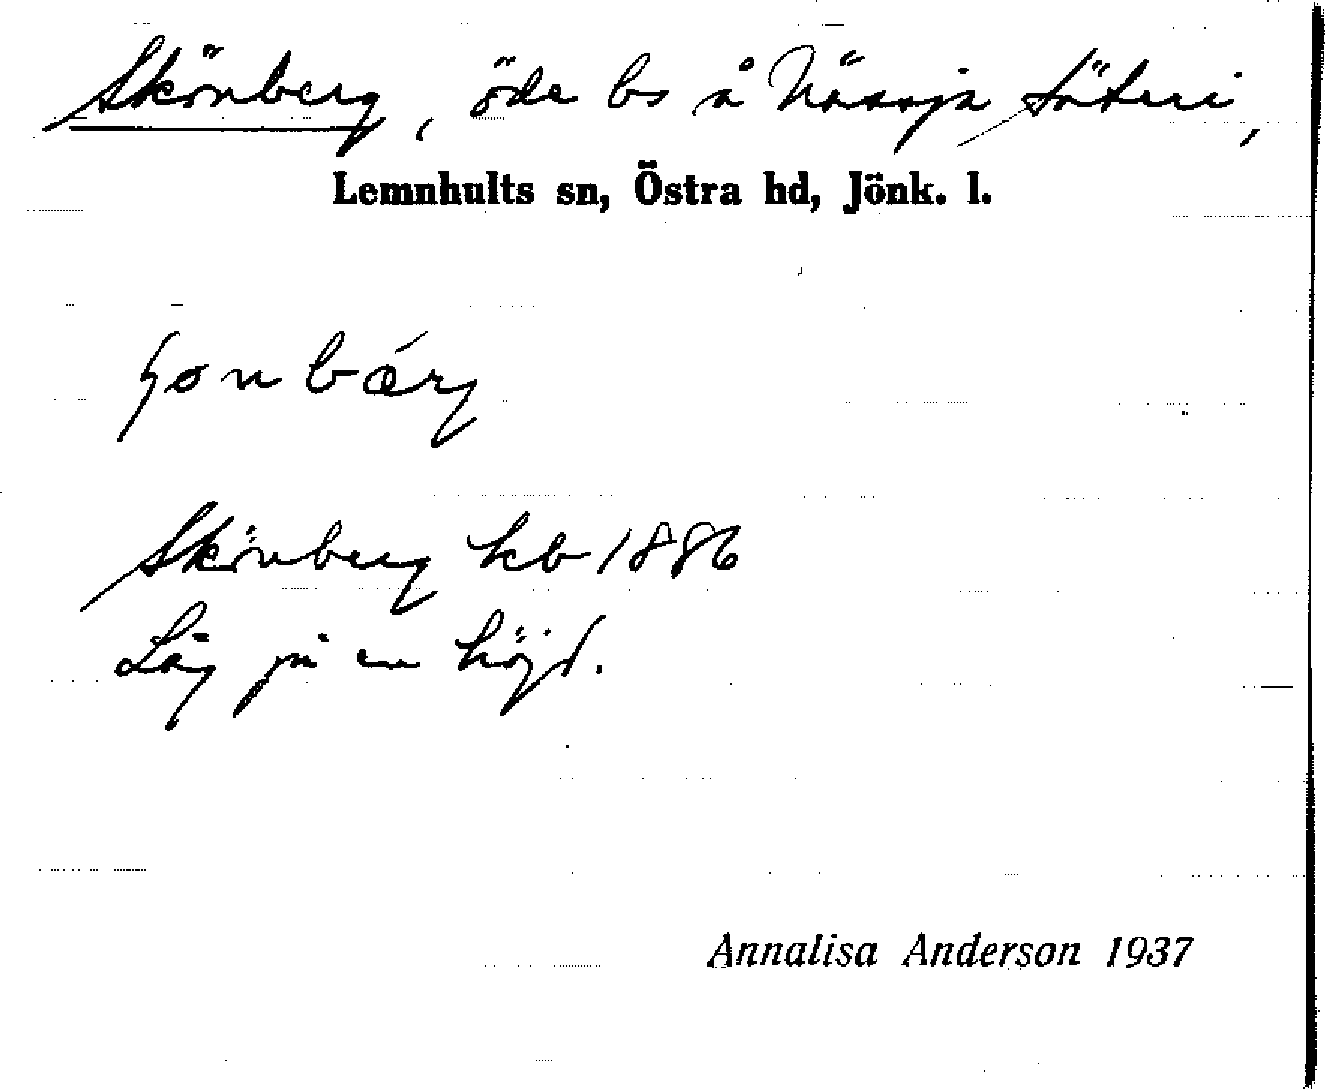 Skönberg, öde bs å Nässja Säteri,
Lemnhults sn, Östra hd, Jönk. l.
ʃonbærj
Skönberg kb 1886
Låg på en höjd.
Annalisa Anderson 1937